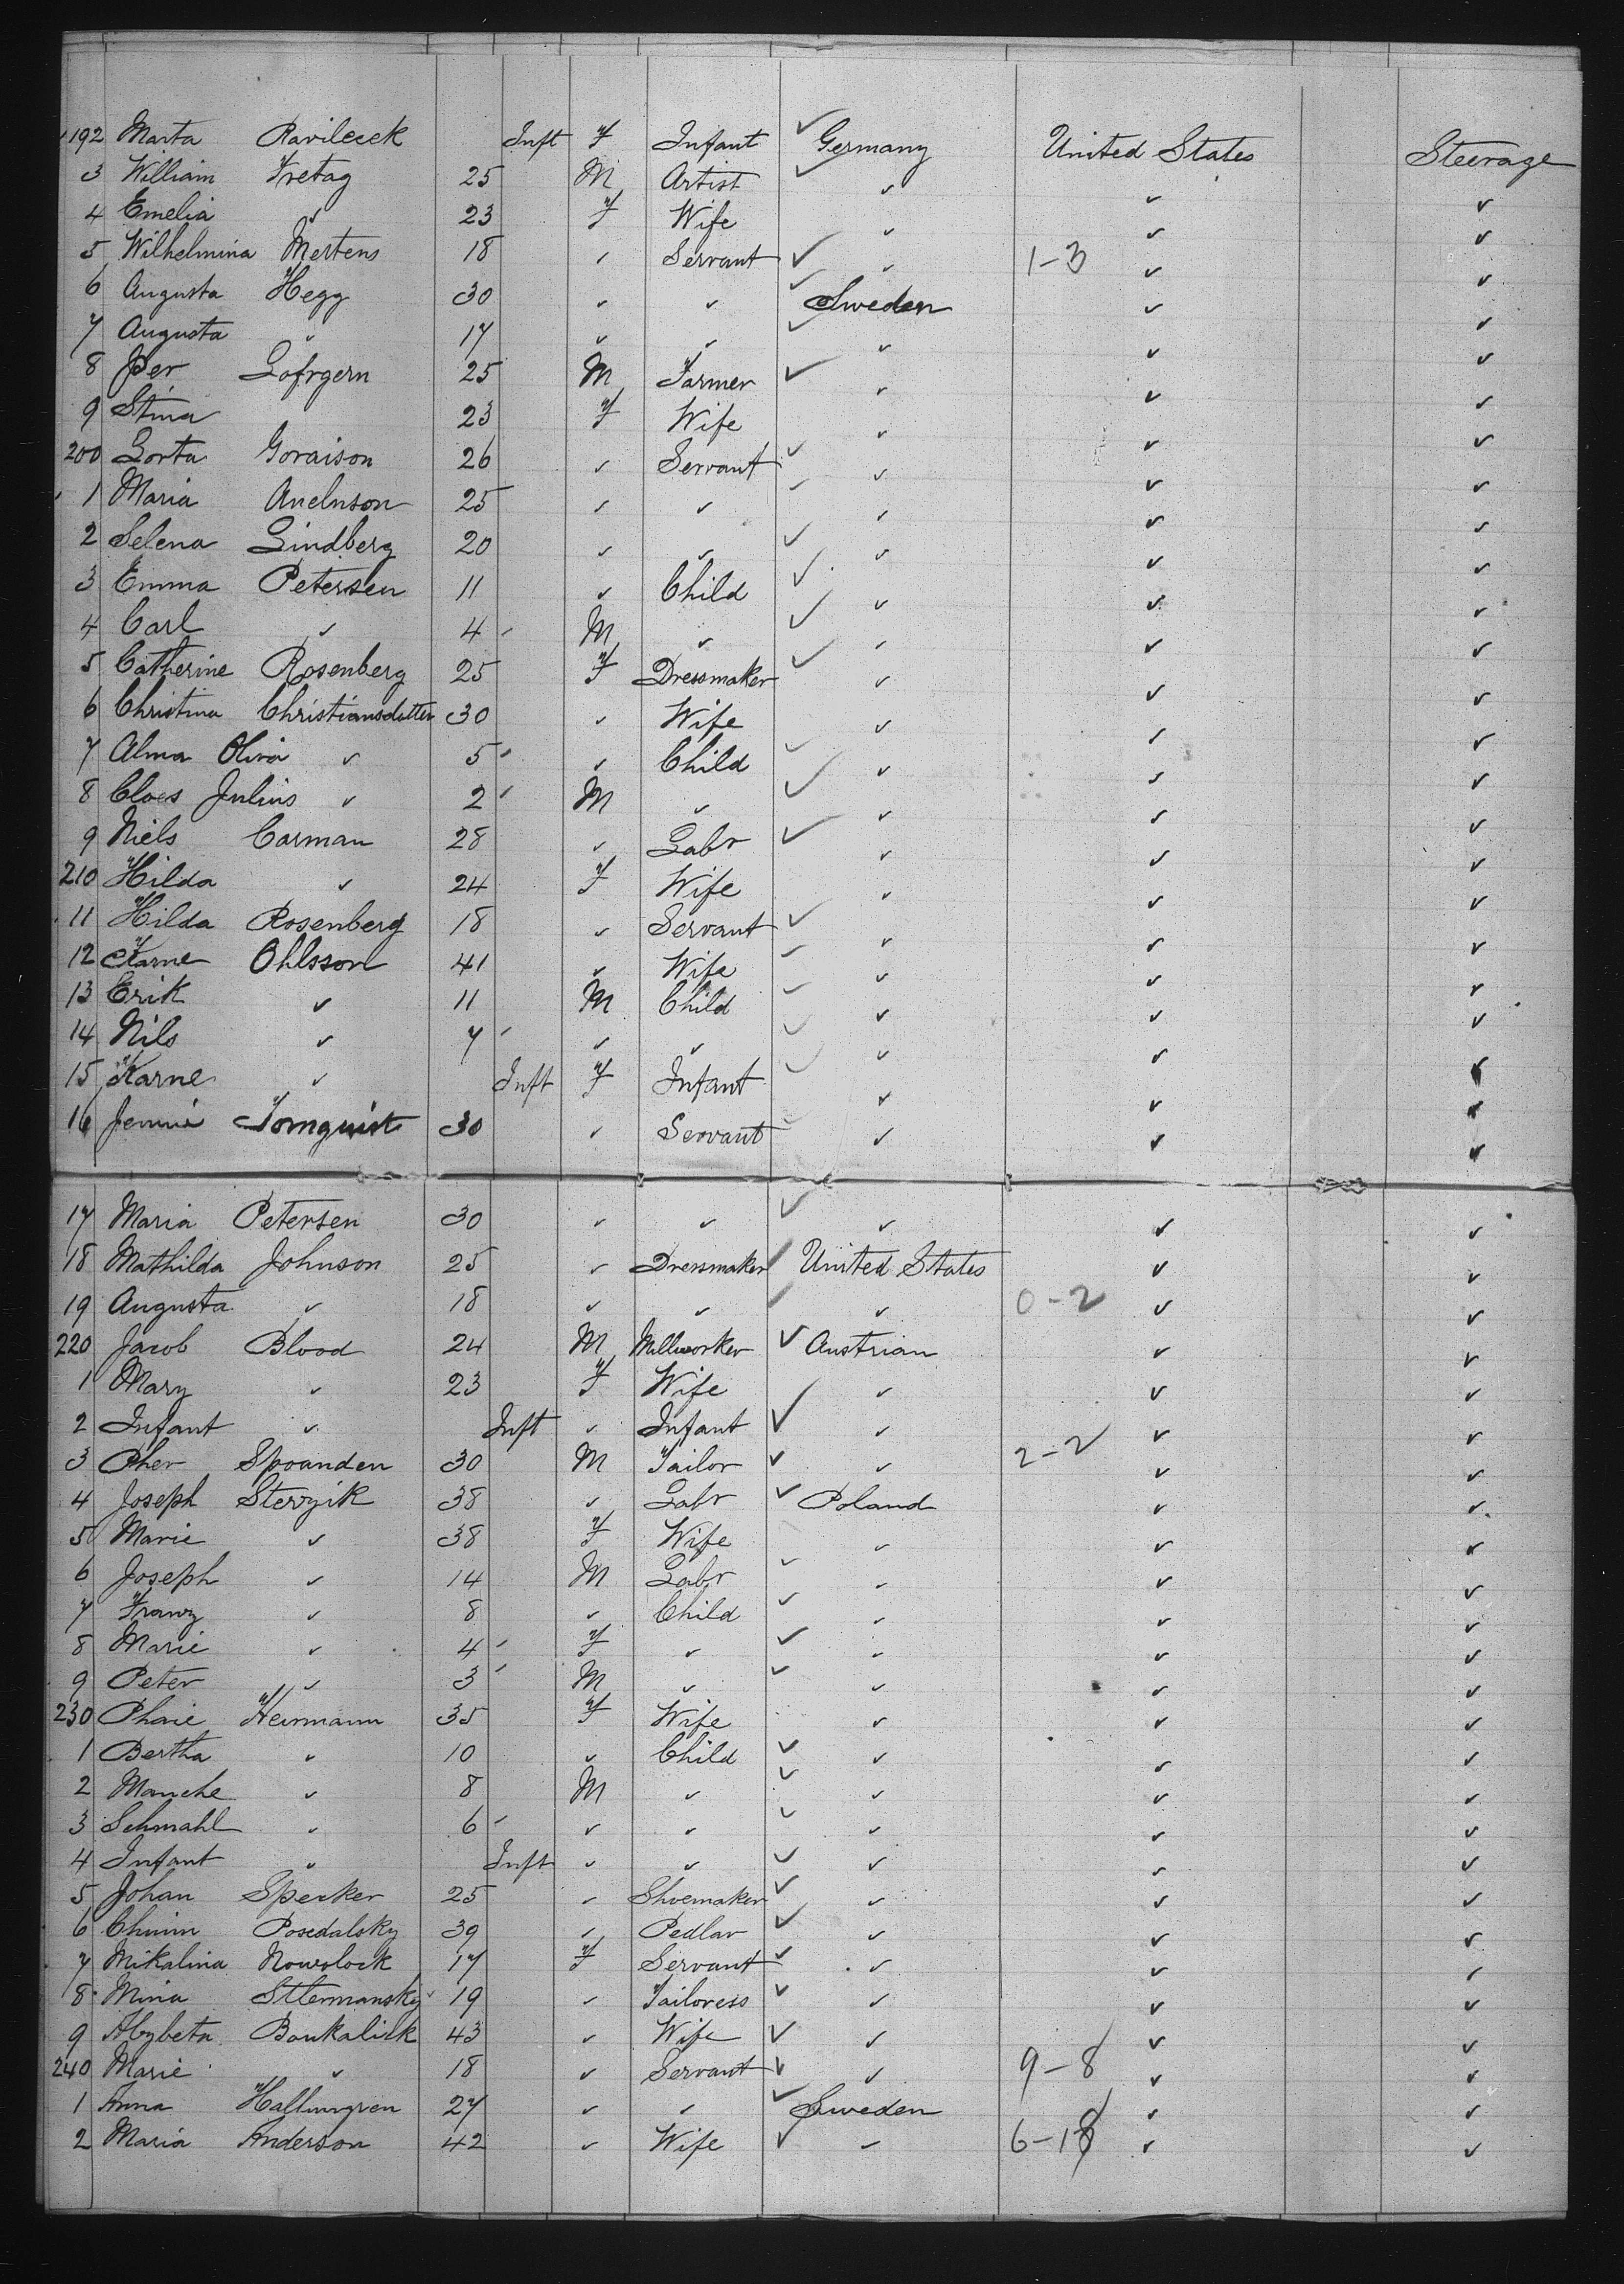 192 Marta Ravileeck Inft F Infant ✓ Germany United States Steerage
3 William Fretag 25 M Artist ✓ ✓ ✓ ✓
4 Emelia ✓ 23 F Wife ✓ ✓ ✓
5 Wilhelmina Mertens 18 ✓ Servant ✓ ✓ 1-3 ✓ ✓
6 Augusta Hegg 30 ✓ ✓ ✓ Sweden ✓ ✓
7 Augusta ✓ 17 ✓ ✓ ✓ ✓ ✓ ✓
8 Per Lofrgern 25 M Farmer ✓ ✓ ✓ ✓
9 Stina 23 F Wife ✓ ✓ ✓
200 Lorta Goraison 26 ✓ Servant ✓ ✓ ✓ ✓
1 Maria Anelnson 25 ✓ ✓ ✓ ✓ ✓ ✓
2 Selena Lindberg 20 ✓ ✓ ✓ ✓ ✓ ✓
3 Emma Petersen 11 ✓ Child ✓ ✓ ✓ ✓
4 Carl ✓ 4 M ✓ ✓ ✓ ✓ ✓
5 Catherine Rosenberg 25 F Dressmaker ✓ ✓ ✓ ✓
6 Christina Christiansdotter 30 ✓ Wife ✓ ✓ ✓
7 Alma Olivia ✓ 5 ✓ Child ✓ ✓ ✓ ✓
8 Cloes Julius ✓ 2 M ✓ ✓ ✓ ✓ ✓
9 Niels Carman 28 ✓ Labr ✓ ✓ ✓ ✓
210 Hilda ✓ 24 F Wife ✓ ✓ ✓
11 Hilda Rosenberg 18 ✓ Servant ✓ ✓ ✓ ✓
12 Karne Ohlsson 41 ✓ Wife ✓ ✓ ✓ ✓
13 Erik ✓ 11 M Child ✓ ✓ ✓ ✓
14 Nils ✓ 7 ✓ ✓ ✓ ✓ ✓ ✓
15 Karne ✓ Inft F Infant ✓ ✓ ✓ ✓
16 Jennie Tornquist 30 ✓ Servant ✓ ✓ ✓ ✓
17 Maria Petersen 30 ✓ ✓ ✓ ✓ ✓ ✓
18 Mathilda Johnson 25 ✓ Dressmaker ✓ United States ✓ ✓
19 Augusta ✓ 18 ✓ ✓ ✓ ✓ 0-2 ✓ ✓
220 Jacob Blood 24 M Millworker ✓ Austrian ✓ ✓
1 Mary ✓ 23 F Wife ✓ ✓ ✓
2 Infant ✓ Inft ✓ Infant ✓ ✓ ✓ ✓
3 Pher Spoanden 30 M Tailor ✓ ✓ 2-2 ✓ ✓
4 Joseph Sterzik 38 ✓ Labr ✓ Poland ✓ ✓
5 Marie ✓ 38 F Wife ✓ ✓ ✓
6 Joseph ✓ 14 M Labr ✓ ✓ ✓ ✓
7 Franz ✓ 8 ✓ Child ✓ ✓ ✓ ✓
8 Marie ✓ 4 F ✓ ✓ ✓ ✓ ✓
9 Peter ✓ 3 M ✓ ✓ ✓ ✓ ✓
230 Phaie Heirmann 35 F Wife ✓ ✓ ✓
1 Bertha ✓ 10 ✓ Child ✓ ✓ ✓ ✓
2 Manche ✓ 8 M ✓ ✓ ✓ ✓ ✓
3 Schmahl ✓ 6 ✓ ✓ ✓ ✓ ✓ ✓
4 Infant ✓ Inft ✓ ✓ ✓ ✓ ✓ ✓
5 Johan Specker 25 ✓ Shoemaker ✓ ✓ ✓ ✓
6 Chaim Posedalsky 39 ✓ Pedlar ✓ ✓ ✓ ✓
7 Mikalina Nowolock 17 F Servant ✓ ✓ ✓ ✓
8 Mina Sttermansky 19 ✓ Tailoress ✓ ✓ ✓ ✓
9 Abybeta Boukalick 43 ✓ Wife ✓ ✓ ✓ ✓
240 Marie ✓ 18 ✓ Servant ✓ ✓ 9-8 ✓ ✓
1 Anna Hallungren 27 ✓ ✓ ✓ Sweden ✓ ✓
2 Maria Anderson 42 ✓ Wife ✓ ✓ 6-18 ✓ ✓